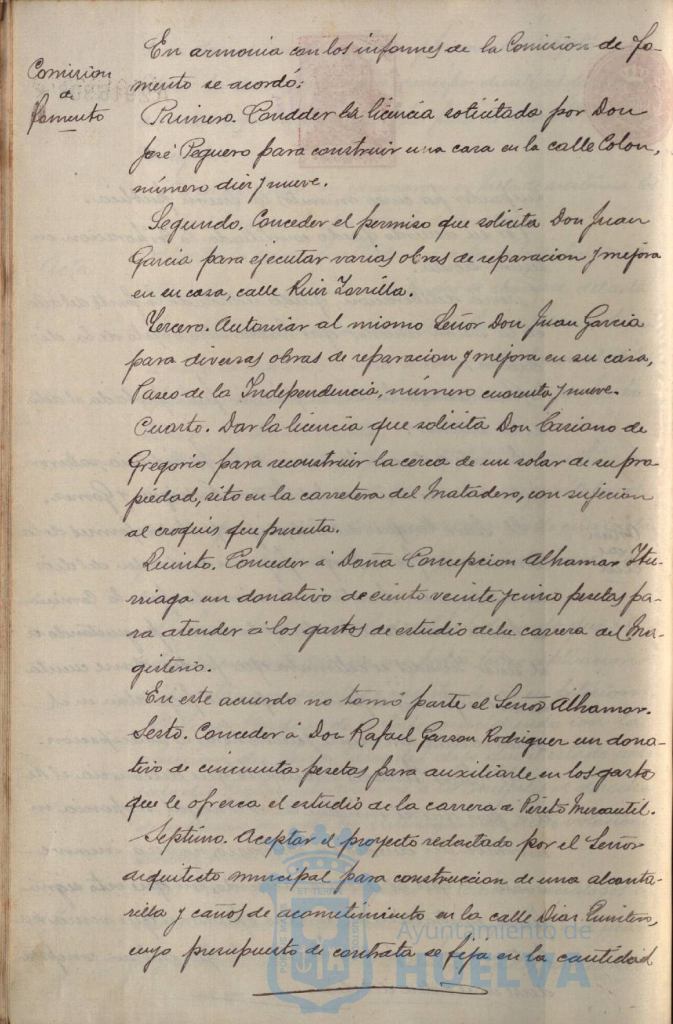 Comision
de
Fomento
En armonia con los informes de la Comision de Fo-
mento se acordó:
Primero. Conceder la licencia solicitada por Don
José Peguero para construir una casa en la calle Colon,
número diez y nueve.
Segundo. Conceder el permiso que solicita Don Juan
Garcia para ejecutar varias obras de reparacion y mejora
en su casa, calle Ruiz Zorrilla.
Tercero. Autorizar al mismo Señor Don Juan Garcia
para diversas obras de reparacion y mejora en su casa,
Paseo de la Independencia, número cuarenta y nueve.
Cuarto. Dar la licencia que solicita Don Casiano de
Gregorio para reconstruir la cerca de un solar de su pro-
piedad, sito en la carretera del Matadero, con sujecion
al croquis que presenta.
Quinto. Conceder á Doña Concepcion Alhamar Itu-
rriaga un donativo de ciento veinte y cinco pesetas pa-
ra atender á los gastos de estudio de la carrera del Ma-
gisterio.
En este acuerdo no tomó parte el Señor Alhamar.
Sesto. Conceder á Don Rafael Garzon Rodriguez un dona-
tivo de cincuenta pesetas para auxiliarle en los gastos
que le ofrezca el estudio de la carrera de Périto Mercantil.
Septimo. Aceptar el proyecto redactado por el Señor
arquitecto municipal para construccion de una alcanta-
rilla y caños de acometimiento en la calle Diaz Quintero,
cuyo presupuesto de contrata se fija en la cantidad
Ayuntamiento de
HUELVA